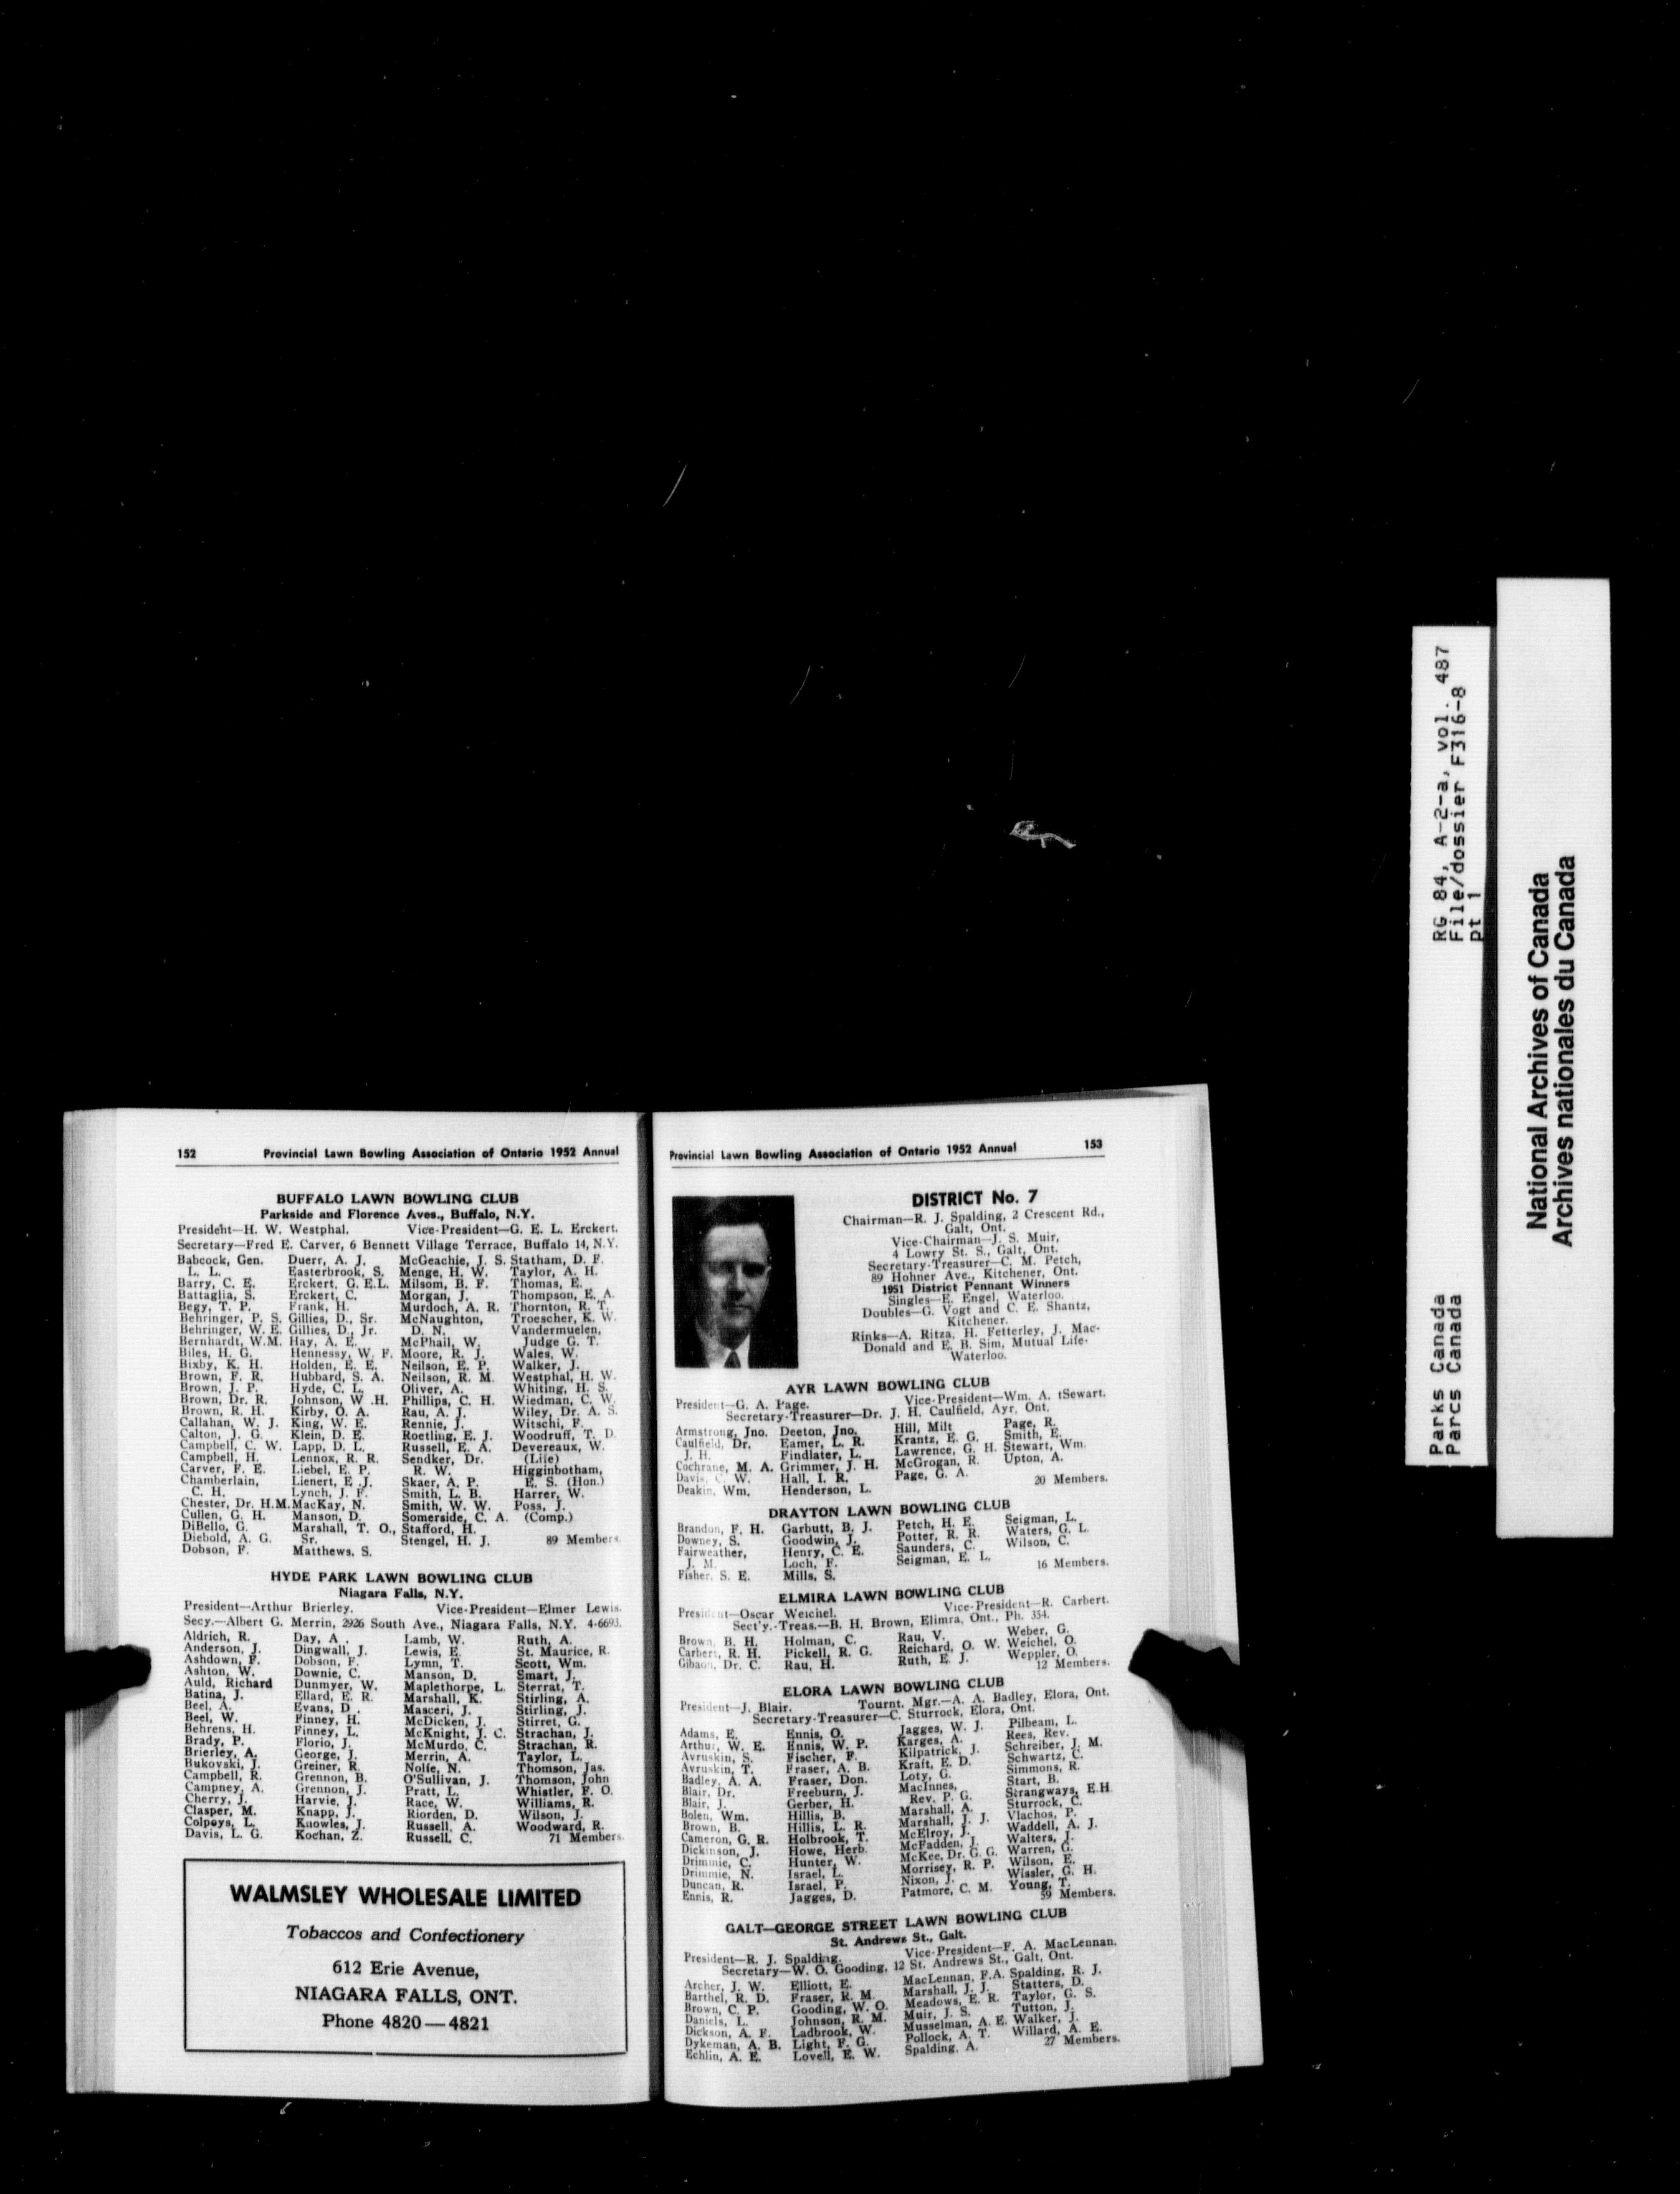 152 Provincial Lawn Bowling Association of Ontario 1952 Annual
BUFFALO LAWN BOWLING CLUB
Parkside and Florence Aves., Buffalo, N.Y.
President—H. W. Westphal. Vice-President—G. E. L. Erckert.
Secretary—Fred E. Carver, 6 Bennett Village Terrace, Buffalo 14, N.Y.
Babcock, Gen. Duerr, A. J. McGeachie, J. S. Statham, D. F.
L. L. Easterbrook, S. Menge, H. W. Taylor, A. H.
Barry, C. E. Erckert, G. E.L. Milsom, B. F. Thomas, E.
Battaglia, S. Erckert, C. Morgan, J. Thompson, E. A.
Begy, T. P. Frank, H. Murdoch, A. R. Thornton, R. T.
Behringer, P. S. Gillies, D., Sr. McNaughton, Troescher, K. W.
Behringer, W. E. Gillies, D., Jr. D. N. Vandermuelen,
Bernhardt, W.M. Hay, A. E. McPhail, W. Judge G. T.
Biles, H. G. Hennessy, W. F. Moore, R. J. Wales, W.
Bixby, K. H. Holden, E. E. Neilson, E. P. Walker, J.
Brown, F. R. Hubbard, S. A. Neilson, R. M. Westphal, H. W.
Brown, J. P. Hyde, C. L. Oliver, A. Whiting, H. S.
Brown, Dr. R. Johnson, W .H. Phillips, C. H. Wiedman, C. W.
Brown, R. H. Kirby, O. A. Rau, A. J. Wiley, Dr. A. S.
Callahan, W. J. King, W. E. Rennie, J. Witschi, F.
Calton, J. G. Klein, D. E. Roetling, E. J. Woodruff, T. D.
Campbell, C. W. Lapp, D. L. Russell, E. A. Devereaux, W.
Campbell, H. Lennox, R. R. Sendker, Dr. (Life)
Carver, F. E. Liebel, E. P. R. W. Higginbotham,
Chamberlain, Lienert, E .J. Skaer, A. P. E. S. (Hon.)
C. H. Lynch, J. F. Smith, L. B. Harrer, W.
Chester, Dr. H.M. MacKay, N. Smith, W. W. Poss, J.
Cullen, G. H. Manson, D. Somerside, C. A. (Comp.)
DiBello, G. Marshall, T. O., Stafford, H.
Diebold, A. G. Sr. Stengel, H. J. 89 Members.
Dobson, F. Matthews, S.
HYDE PARK LAWN BOWLING CLUB
Niagara Falls, N.Y.
President—Arthur Brierley. Vice-President—Elmer Lewis.
Secy.—Albert G. Merrin, 2926 South Ave., Niagara Falls, N.Y. 4-6693.
Aldrich, R. Day, A . Lamb, W. Ruth, A.
Anderson, J. Dingwall, J. Lewis, E. St. Maurice, R.
Ashdown, F. Dobson, F. Lymn, T. Scott, Wm.
Ashton, W. Downie, C. Manson, D. Smart, J.
Auld, Richard Dunmyer, W. Maplethorpe, L. Sterrat, T.
Batina, J. Ellard, E. R. Marshall, K. Stirling, A.
Beel, A. Evans, D . Masceri, J. Stirling, J.
Beel, W. Finney, H. McDicken, J. Stirret, G.
Behrens, H. Finney, L. McKnight, J. C. Strachan, J.
Brady, P. Florio, J. McMurdo, C. Strachan, R.
Brierley, A. George, J. Merrin, A. Taylor, L.
Bukovski, J. Greiner, R. Nolfe, N. Thomson, Jas.
Campbell, R. Grennon, B. O'Sullivan, J. Thomson, John
Campney, A. Grennon, J. Pratt, L. Whistler, F. O.
Cherry, J. Harvie, J. Race, W. Williams, R.
Clasper, M. Knapp, J. Riorden, D. Wilson, J.
Colpoys, L. Knowles, J. Russell, A. Woodward, R.
Davis, L. G. Kochan, Z. Russell, C. 71 Members.
WALMSLEY WHOLESALE LIMITED
Tobaccos and Confectionery
612 Erie Avenue,
NIAGARA FALLS, ONT.
Phone 4820 — 4821
Provincial Lawn Bowling Association of Ontario 1952 Annual 153
DISTRICT No. 7
Chairman—R. J. Spalding, 2 Crescent Rd.,
Galt, Ont.
Vice-Chairman—J. S. Muir,
4 Lowry St. S., Galt, Ont.
Secretary-Treasurer—C. M. Petch,
89 Hohner Ave., Kitchener, Ont.
1951 District Pennant Winners
Singles—E. Engel, Waterloo.
Doubles—G. Vogt and C. E. Shantz,
Kitchener.
Rinks—A. Ritza, H. Fetterley, J. Mac-
Donald and E. B. Sim, Mutual Life-
Waterloo.
AYR LAWN BOWLING CLUB
President—G. A. Page. Vice-President—Wm. A. tSewart.
Secretary-Treasurer—Dr. J. H. Caulfield, Ayr, Ont.
Armstrong, Jno. Deeton, Jno. Hill, Milt Page, R.
Caulfield, Dr. Eamer, L. R. Krantz, E. G. Smith, E.
J. H. Findlater, L. Lawrence, G. H. Stewart, Wm.
Cochrane, M. A. Grimmer, J. H. McGrogan, R. Upton, A.
Davis, C. W. Hall, I. R. Page, G. A.
Deakin, Wm. Henderson, L. 20 Members.
DRAYTON LAWN BOWLING CLUB
Brandon, F. H. Garbutt, B. J. Petch, H. E. Seigman, L.
Downey, S. Goodwin, J. Potter, R. R. Waters, G. L.
Fairweather, Henry, C. E. Saunders, C. Wilson, C.
J. M. Loch, F. Seigman, E. L.
Fisher, S. E. Mills, S. 16 Members.
ELMIRA LAWN BOWLING CLUB
President—Oscar Weichel. Vice-President—R. Carbert.
Sect'y.-Treas.—B. H. Brown, Elimra, Ont., Ph. 354.
Brown, B. H. Holman, C. Rau, V. Weber, G.
Carbert, R. H. Pickell, R. G. Reichard, O. W. Weichel, O.
Gibson, Dr. C. Rau, H. Ruth, E. J. Weppler, O.
12 Members.
ELORA LAWN BOWLING CLUB
President—J. Blair. Tournt. Mgr.—A. A. Badley, Elora, Ont.
Secretary-Treasurer—C. Sturrock, Elora, Ont.
Adams, E. Ennis, O. Jagges, W. J. Pilbeam, L.
Arthur, W. E. Ennis, W. P. Karges, A. Rees, Rev.
Avruskin, S. Fischer, F. Kilpatrick, J. Schreiber, J. M.
Avruskin, T. Fraser, A. B. Kraft, E. D. Schwartz, C.
Badley, A. A. Fraser, Don. Loty, G. Simmons, R.
Blair, Dr. Freeburn, J. MacInnes, Start, B.
Blair, J. Gerber, H. Rev. P. G. Strangways, E.H.
Bolen, Wm. Hillis, B. Marshall, A. Sturrock, C.
Brown, B. Hillis, L. R. Marshall, J. J. Vlachos, P.
Cameron, G. R. Holbrook, T. McElroy, J. Waddell, A. J.
Dickinson, J. Howe, Herb. McFadden, J. Walters, J.
Drimmie, C. Hunter, W. McKee, Dr. G. G. Warren, G.
Drimmie, N. Israel, L. Morrisey, R. P. Wilson, E.
Duncan, R. Israel, P. Nixon, J. Wissler, G. H.
Ennis, R. Jagges, D. Patmore, C. M. Young, T.
59 Members.
GALT—GEORGE STREET LAWN BOWLING CLUB
St. Andrews St., Galt.
President—R. J. Spalding. Vice-President—F. A. MacLennan.
Secretary—W. O. Gooding, 12 St. Andrews St., Galt, Ont.
Archer, J. W. Elliott, E. MacLennan, F.A. Spalding, R. J.
Barthel, R. D. Fraser, R. M. Marshall, J. J. Statters, D.
Brown, C. P. Gooding, W. O. Meadows, E. R. Taylor, G. S.
Daniels, L. Johnson, R. M. Muir, J. S. Tutton, J.
Dickson, A. F. Ladbrook, W. Musselman, A. E. Walker, J.
Dykeman, A. B. Light, F. G. Pollock, A. T. Willard, A. E.
Echlin, A. E. Lovell, E. W. Spalding, A. 27 Members.
RG 84, A-2-a, vol. 487
File/dossier F316-8
pt 1
Parks Canada
Parcs Canada
National Archives of Canada
Archives nationales du Canada